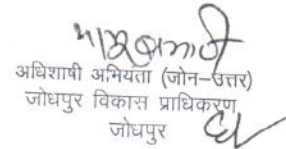 अधिशाषी अभियंता (जोन–उत्तर)
जोधपुर विकास प्राधिकरण
जोधपुर